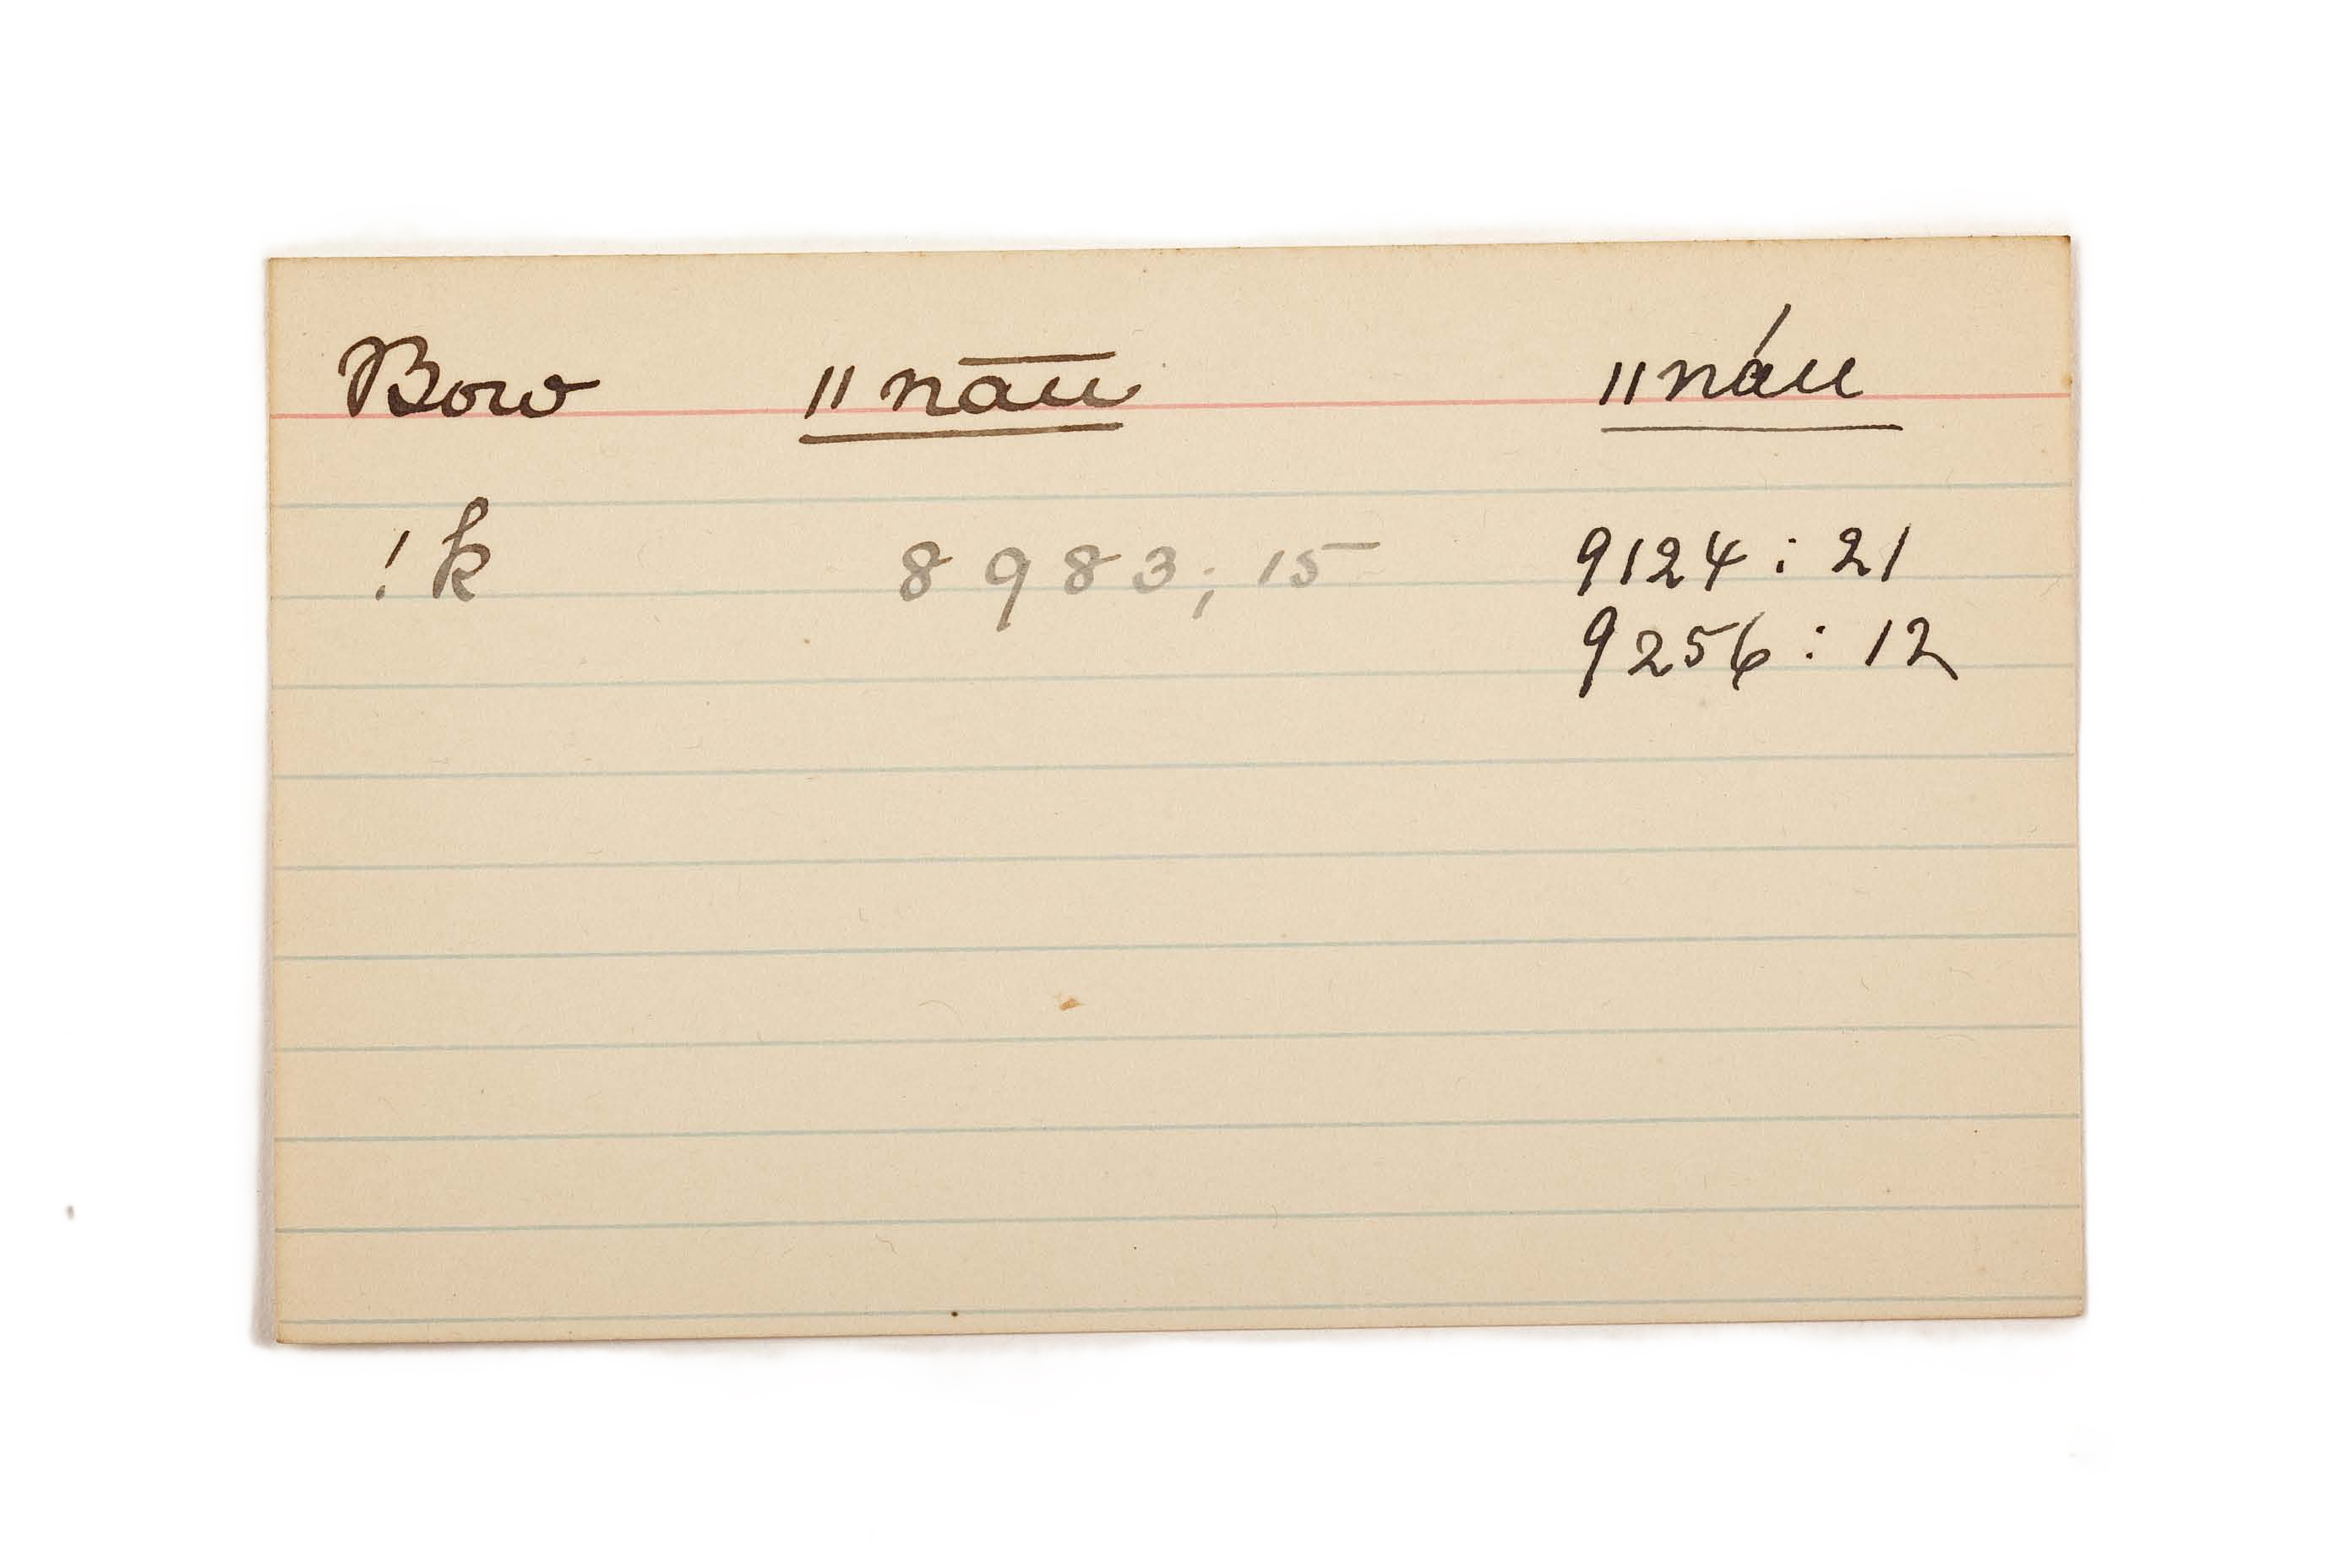 Bow ǁnā̄ū ǁnáu
!k 8983; 15 9124 : 21
9256 : 12